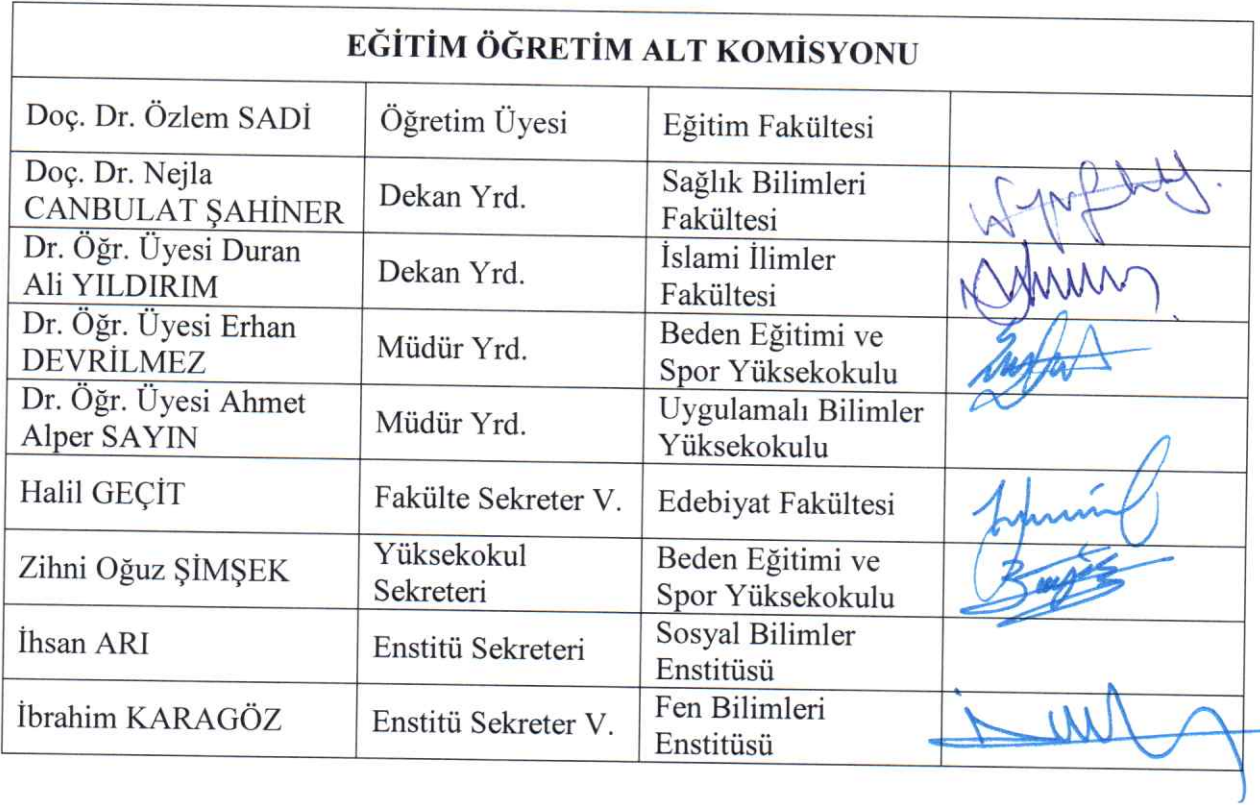 EĞİTİM ÖĞRETİM ALT KOMİSYONU
Doç. Dr. Özlem SADİ
Öğretim Üyesi
Eğitim Fakültesi
Doç. Dr. Nejla
CANBULAT ŞAHİNER
Dekan Yrd.
Sağlık Bilimleri
Fakültesi
Dr. Öğr. Üyesi Duran
Ali YILDIRIM
Dekan Yrd.
İslami İlimler
Fakültesi
Dr. Öğr. Üyesi Erhan
DEVRİLMEZ
Müdür Yrd.
Beden Eğitimi ve
Spor Yüksekokulu
Dr. Öğr. Üyesi Ahmet
Alper SAYIN
Müdür Yrd.
Uygulamalı Bilimler
Yüksekokulu
Halil GEÇİT
Fakülte Sekreter V.
Edebiyat Fakültesi
Zihni Oğuz ŞİMŞEK
Yüksekokul
Sekreteri
Beden Eğitimi ve
Spor Yüksekokulu
İhsan ARI
Enstitü Sekreteri
Sosyal Bilimler
Enstitüsü
İbrahim KARAGÖZ
Enstitü Sekreter V.
Fen Bilimleri
Enstitüsü